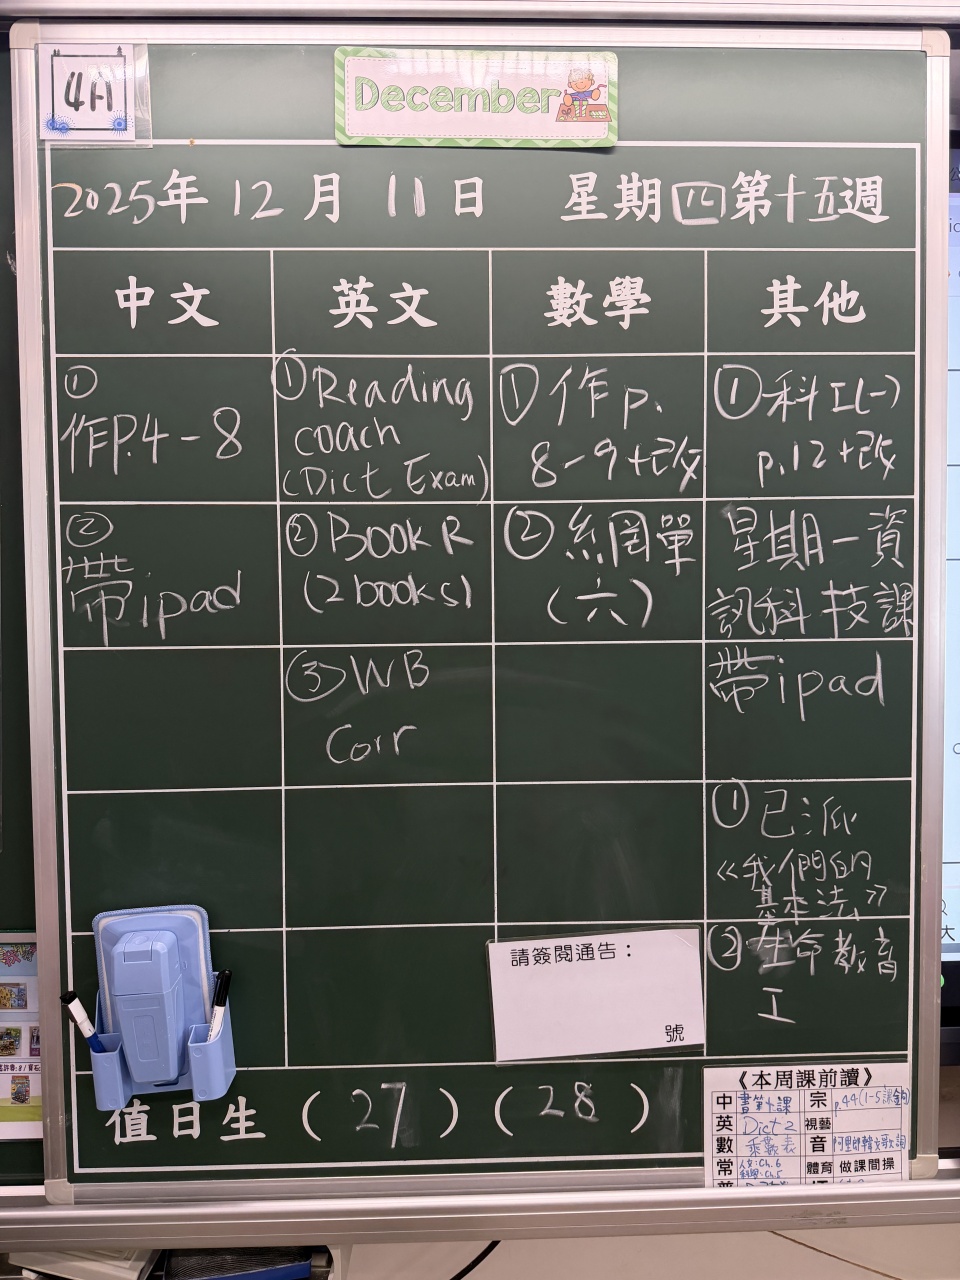 4A
December
2025年 12月 11日 星期四第十五週
中文 英文 數學 其他
①
作P.4-8
①Reading
coach
(Dict Exam)
①作p.
8-9+改
①科工(一)
p.12+改
②
帶ipad
②Book R
(2 books)
②網單
(六)
星期一資
訊科技課
③WB
Corr
帶ipad
①已派
《我們的
基本法》
②生命教育
工
請簽閱通告：
號
值日生 (27) (28)
《本周課前讀》
中 書第十課 宗 p.44(1-5課金句)
英 Dict 2 視藝
數 乘數表 音
常 人文:Ch.6
科學:Ch.5
體育 做課間操